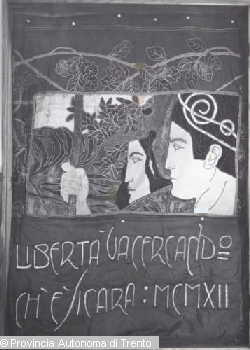 LIBERTÀ VA CERCANDO
CH'È SÌ CARA : MCMXII
© Provincia Autonoma di Trento